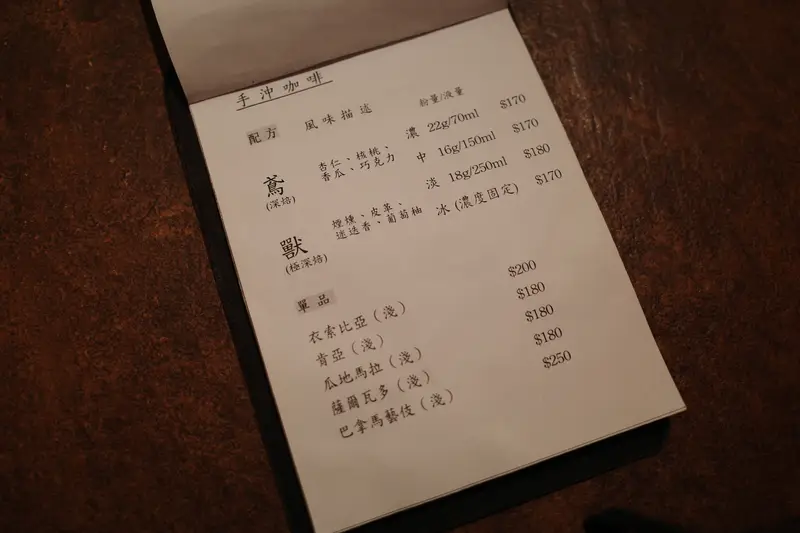 手沖咖啡
配方 風味描述 粉量/液量
鳶 (深焙) 杏仁、核桃、
香瓜、巧克力
獸 (極深焙) 煙燻、皮革、
迷迭香、葡萄柚
濃 22g/70ml $170
中 16g/150ml $170
淡 18g/250ml $180
冰 (濃度固定) $170
單品
衣索比亞(淺) $200
肯亞(淺) $180
瓜地馬拉(淺) $180
薩爾瓦多(淺) $180
巴拿馬藝伎(淺) $250